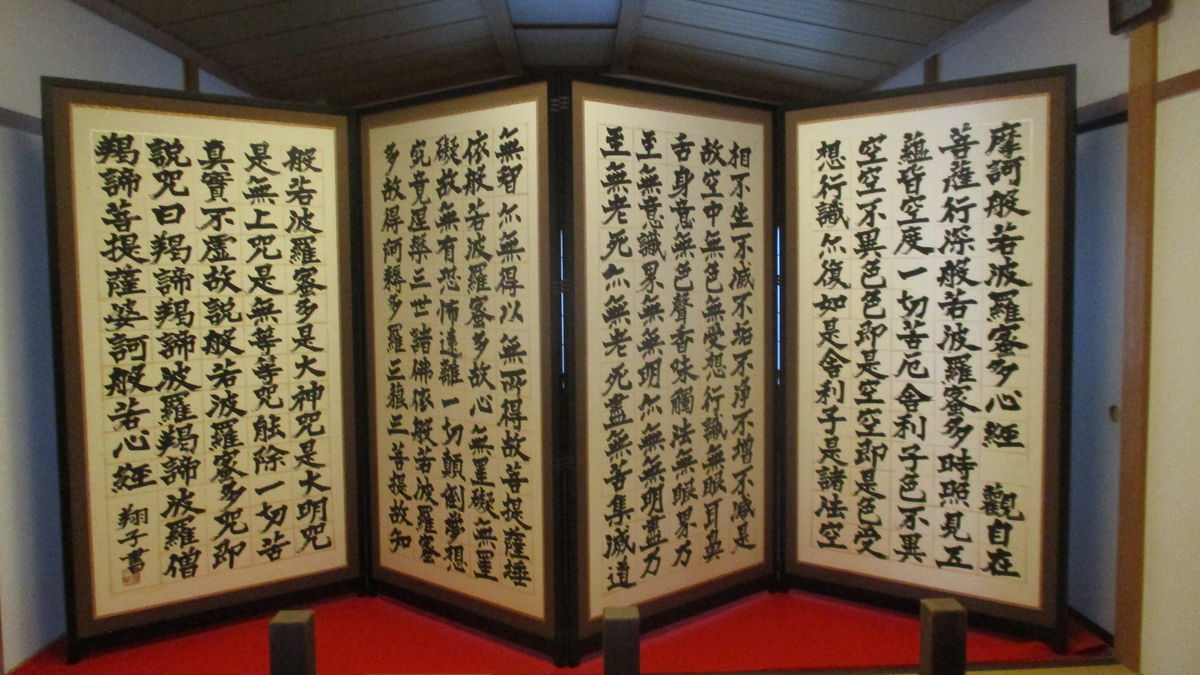 摩訶般若波羅蜜多心経 觀自在
菩薩行深般若波羅蜜多時照見五
蘊皆空度一切苦厄舎利子色不異
空空不異色色即是空空即是色受
想行識亦復如是舎利子是諸法空
相不生不滅不垢不浄不増不減是
故空中無色無受想行識無眼耳鼻
舌身意無色聲香味觸法無眼界乃
至無意識界無無明亦無無明盡乃
至無老死亦無老死盡無苦集滅道
無智亦無得以無所得故菩提薩埵
依般若波羅蜜多故心無罣礙無罣
礙故無有恐怖遠離一切顛倒夢想
究竟涅槃三世諸佛依般若波羅蜜
多故得阿耨多羅三藐三菩提故知
般若波羅蜜多是大神咒是大明咒
是無上咒是無等等咒能除一切苦
真實不虚故説般若波羅蜜多咒即
説咒曰羯諦羯諦波羅羯諦波羅僧
羯諦菩提薩婆訶般若心経 翔子書